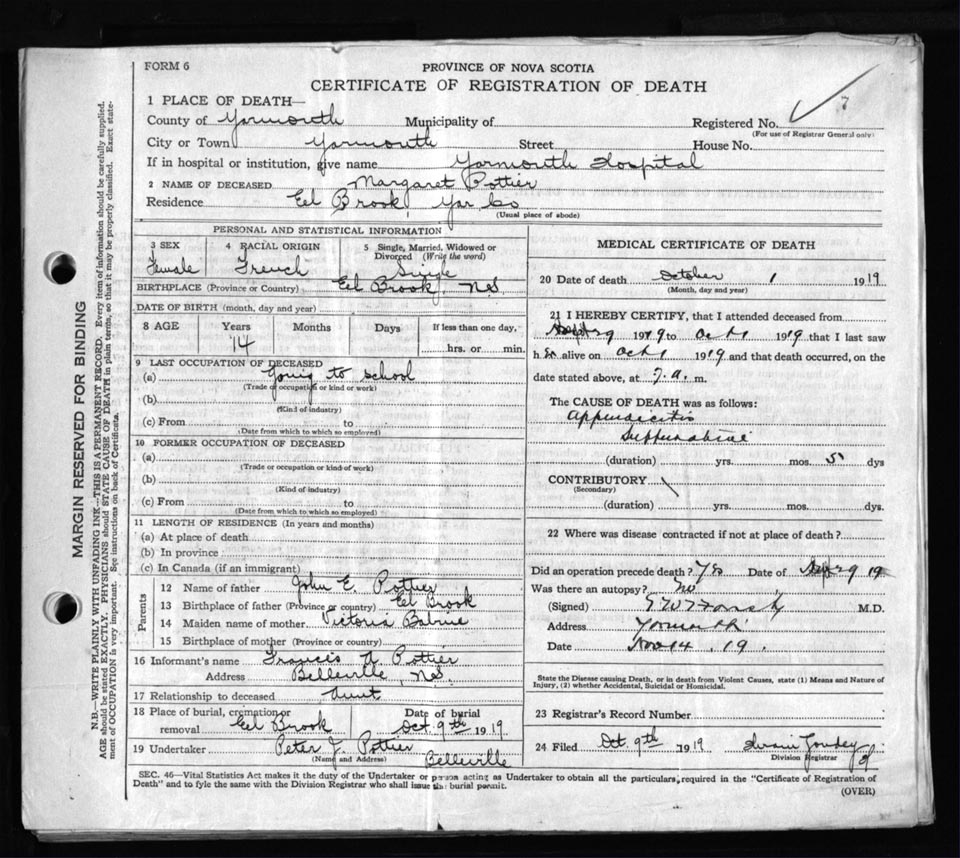 FORM 6
PROVINCE OF NOVA SCOTIA
CERTIFICATE OF REGISTRATION OF DEATH
7
1 PLACE OF DEATH—
County of Yarmouth Municipality of Registered No.
(For use of Registrar General only)
City or Town Yarmouth Street House No.
If in hospital or institution, give name Yarmouth Hospital
2 NAME OF DECEASED Margaret Pottier
Residence Eel Brook Yar Co
(Usual place of abode)
PERSONAL AND STATISTICAL INFORMATION
3 SEX 4 RACIAL ORIGIN 5 Single, Married, Widowed or Divorced (Write the word)
Female French Single
BIRTHPLACE (Province or Country) Eel Brook, N.S
DATE OF BIRTH (month, day and year)
8 AGE Years Months Days If less than one day,
14 hrs. or min.
9 LAST OCCUPATION OF DECEASED
(a) Going to school
(Trade or occupation or kind of work)
(b)
(Kind of industry)
(c) From to
(Date from which to which so employed)
10 FORMER OCCUPATION OF DECEASED
(a)
(Trade or occupation or kind of work)
(b)
(Kind of industry)
(c) From to
(Date from which to which so employed)
11 LENGTH OF RESIDENCE (In years and months)
(a) At place of death
(b) In province
(c) In Canada (if an immigrant)
Parents
12 Name of father John E. Pottier
13 Birthplace of father (Province or country) Eel Brook
14 Maiden name of mother Victoria
15 Birthplace of mother (Province or country)
16 Informant's name Francis A. Pottier
Address Belleville, N.S.
17 Relationship to deceased Aunt
18 Place of burial, cremation or removal Eel Brook
Date of burial Oct. 9th 1919
19 Undertaker Peter J. Pottier
(Name and Address) Belleville
MEDICAL CERTIFICATE OF DEATH
20 Date of death October 1 1919
(Month, day and year)
21 I HEREBY CERTIFY, that I attended deceased from
Sept 29 1919 to Oct 1 1919 that I last saw
h er alive on Oct 1 1919 and that death occurred, on the
date stated above, at 7.a. m.
The CAUSE OF DEATH was as follows:
Appendicitis
Suppurative
(duration) yrs. mos. 5 dys
CONTRIBUTORY
(Secondary)
(duration) yrs. mos. dys.
22 Where was disease contracted if not at place of death?
Did an operation precede death? Yes Date of Sept 29 19
Was there an autopsy? No
(Signed) M.D.
Address Yarmouth
Date Nov 14 . 19 .
State the Disease causing Death, or in death from Violent Causes, state (1) Means and Nature of
Injury, (2) whether Accidental, Suicidal or Homicidal.
23 Registrar's Record Number
24 Filed Oct. 9th 1919
Division Registrar
SEC. 46—Vital Statistics Act makes it the duty of the Undertaker or person acting as Undertaker to obtain all the particulars required in the "Certificate of Registration of
Death" and to fyle the same with the Division Registrar who shall issue the burial permit.
(OVER)
MARGIN RESERVED FOR BINDING
N.B.—WRITE PLAINLY WITH UNFADING INK—THIS IS A PERMANENT RECORD. Every item of information should be carefully supplied.
AGE should be stated EXACTLY. PHYSICIANS should STATE CAUSE OF DEATH in plain terms, so that it may be properly classified. Exact state-
ment of OCCUPATION is very important. See instructions on back of Certificate.